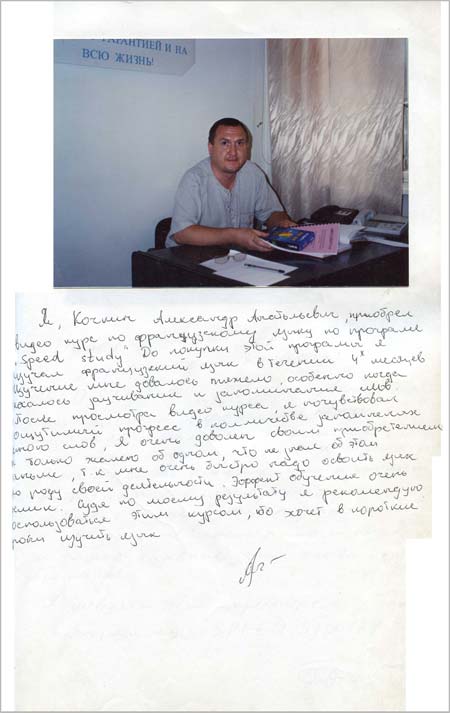 ГАРАНТИЕЙ И НА
ВСЮ ЖИЗНЬ!
Я, Кочкин Александр Анатольевич, приобрел
видео курс по французскому языку по програме
"Speed Study" До покупки этой програмы я
изучал французский язык в течении 4х месяцев
Изучение мне довалось тяжело, особенно когда
касалось заучивания и запоминания слов
После просмотра видео курса, я почувствовал
ощутимый прогресс в количестве
этого слов, я очень доволен своим приобретением
только жалею об одном, что не знал об этом
раньше, т.к мне очень быстро надо освоить язык
по роду своей деятельности. Эффект обучения очень
Судя по моему результату я рекомендую
воспользоваться этим курсом, кто хочет в короткие
сроки изучить язык